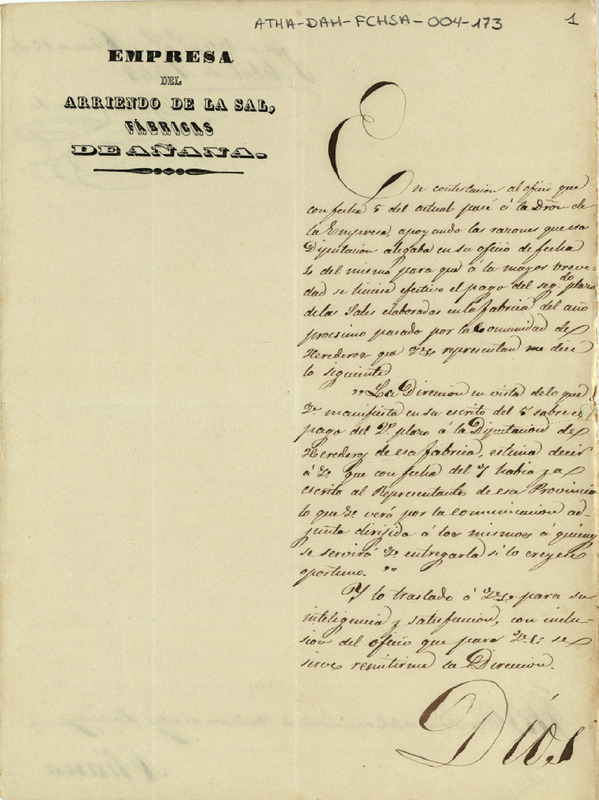 ATHA-DAH-FCHSA-004-173
1
EMPRESA
DEL
ARRIENDO DE LA SAL,
FÁBRICAS
DE AÑANA.
En contestacion al oficio que
con fecha 5 del actual pasé á la Dron de
la Empresa, apoyando las razones que esa
Diputacion alegaba en su oficio de fecha
2 del mismo para que á la mayor breve-
dad se hiciese efectivo el pago del segdo plazo
de las Sales elaboradas en la fabrica del año
procsimo pasado por la Comunidad de
Herederos que Vs representan me dice
lo siguiente
"La Direccion en vista de lo que
V. manifiesta en su escrito del 5 sobre el
pago del 2º plazo á la Diputacion de
Hereders de esa fabrica, estima decir
á V. que con fecha del 7 habia ya
escrito al Representante de esa Provincia
lo que V. verá por la comunicacion ad-
junta dirijida á los mismos á quienes
se servirá V. entregarla si lo creyere
oportuno."
Y lo traslado á Vs. para su
inteligencia y satisfaccion, con inclu-
sion del oficio que para Vs. se
sirve remitirme la Direccion.
Dios